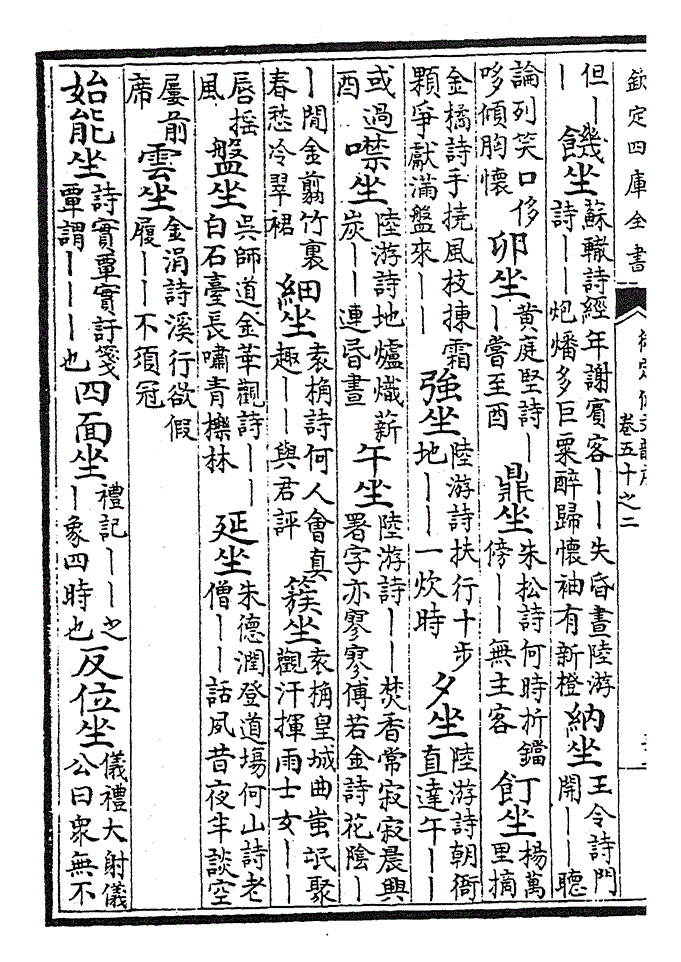 欽定四庫全書
卷五十之二
但｜｜饑坐蘇轍詩經年謝賓客｜｜失昏晝陸游詩｜｜炮燔多巨粟醉歸懷袖有新橙納坐王令詩門開｜｜聽
論列笑口侈哆傾胸懷卯坐黃庭堅詩｜｜嘗至酉鼎坐朱松詩何時折鐺傍｜｜無主客飣坐楊萬里摘
金橘詩手挽風枝揀霜顆爭獻滿盤來｜｜強坐陸游詩扶行十步地｜｜一炊時夕坐陸游詩朝衙直達午｜｜
或過酉噤坐陸游詩地爐熾薪炭｜｜連昏晝午坐陸游詩｜｜焚香常寂寂晨興署字亦寥寥傅若金詩花陰｜
｜閒金翦竹裏春愁冷翠裙細坐袁桷詩何人會真趣｜｜與君評簇坐袁桷皇城曲蚩氓聚觀汗揮雨士女｜｜
唇搖風盤坐吳師道金華觀詩｜｜白石臺長嘯青櫟林延坐朱德潤登道塲何山詩老僧｜｜話夙昔夜半談空
屢前席雲坐金涓詩溪行欲假履｜｜不須冠
始能坐詩實覃實訏箋覃謂｜｜｜也四面坐禮記｜｜之｜象四時也反位坐儀禮大射儀公曰衆無不